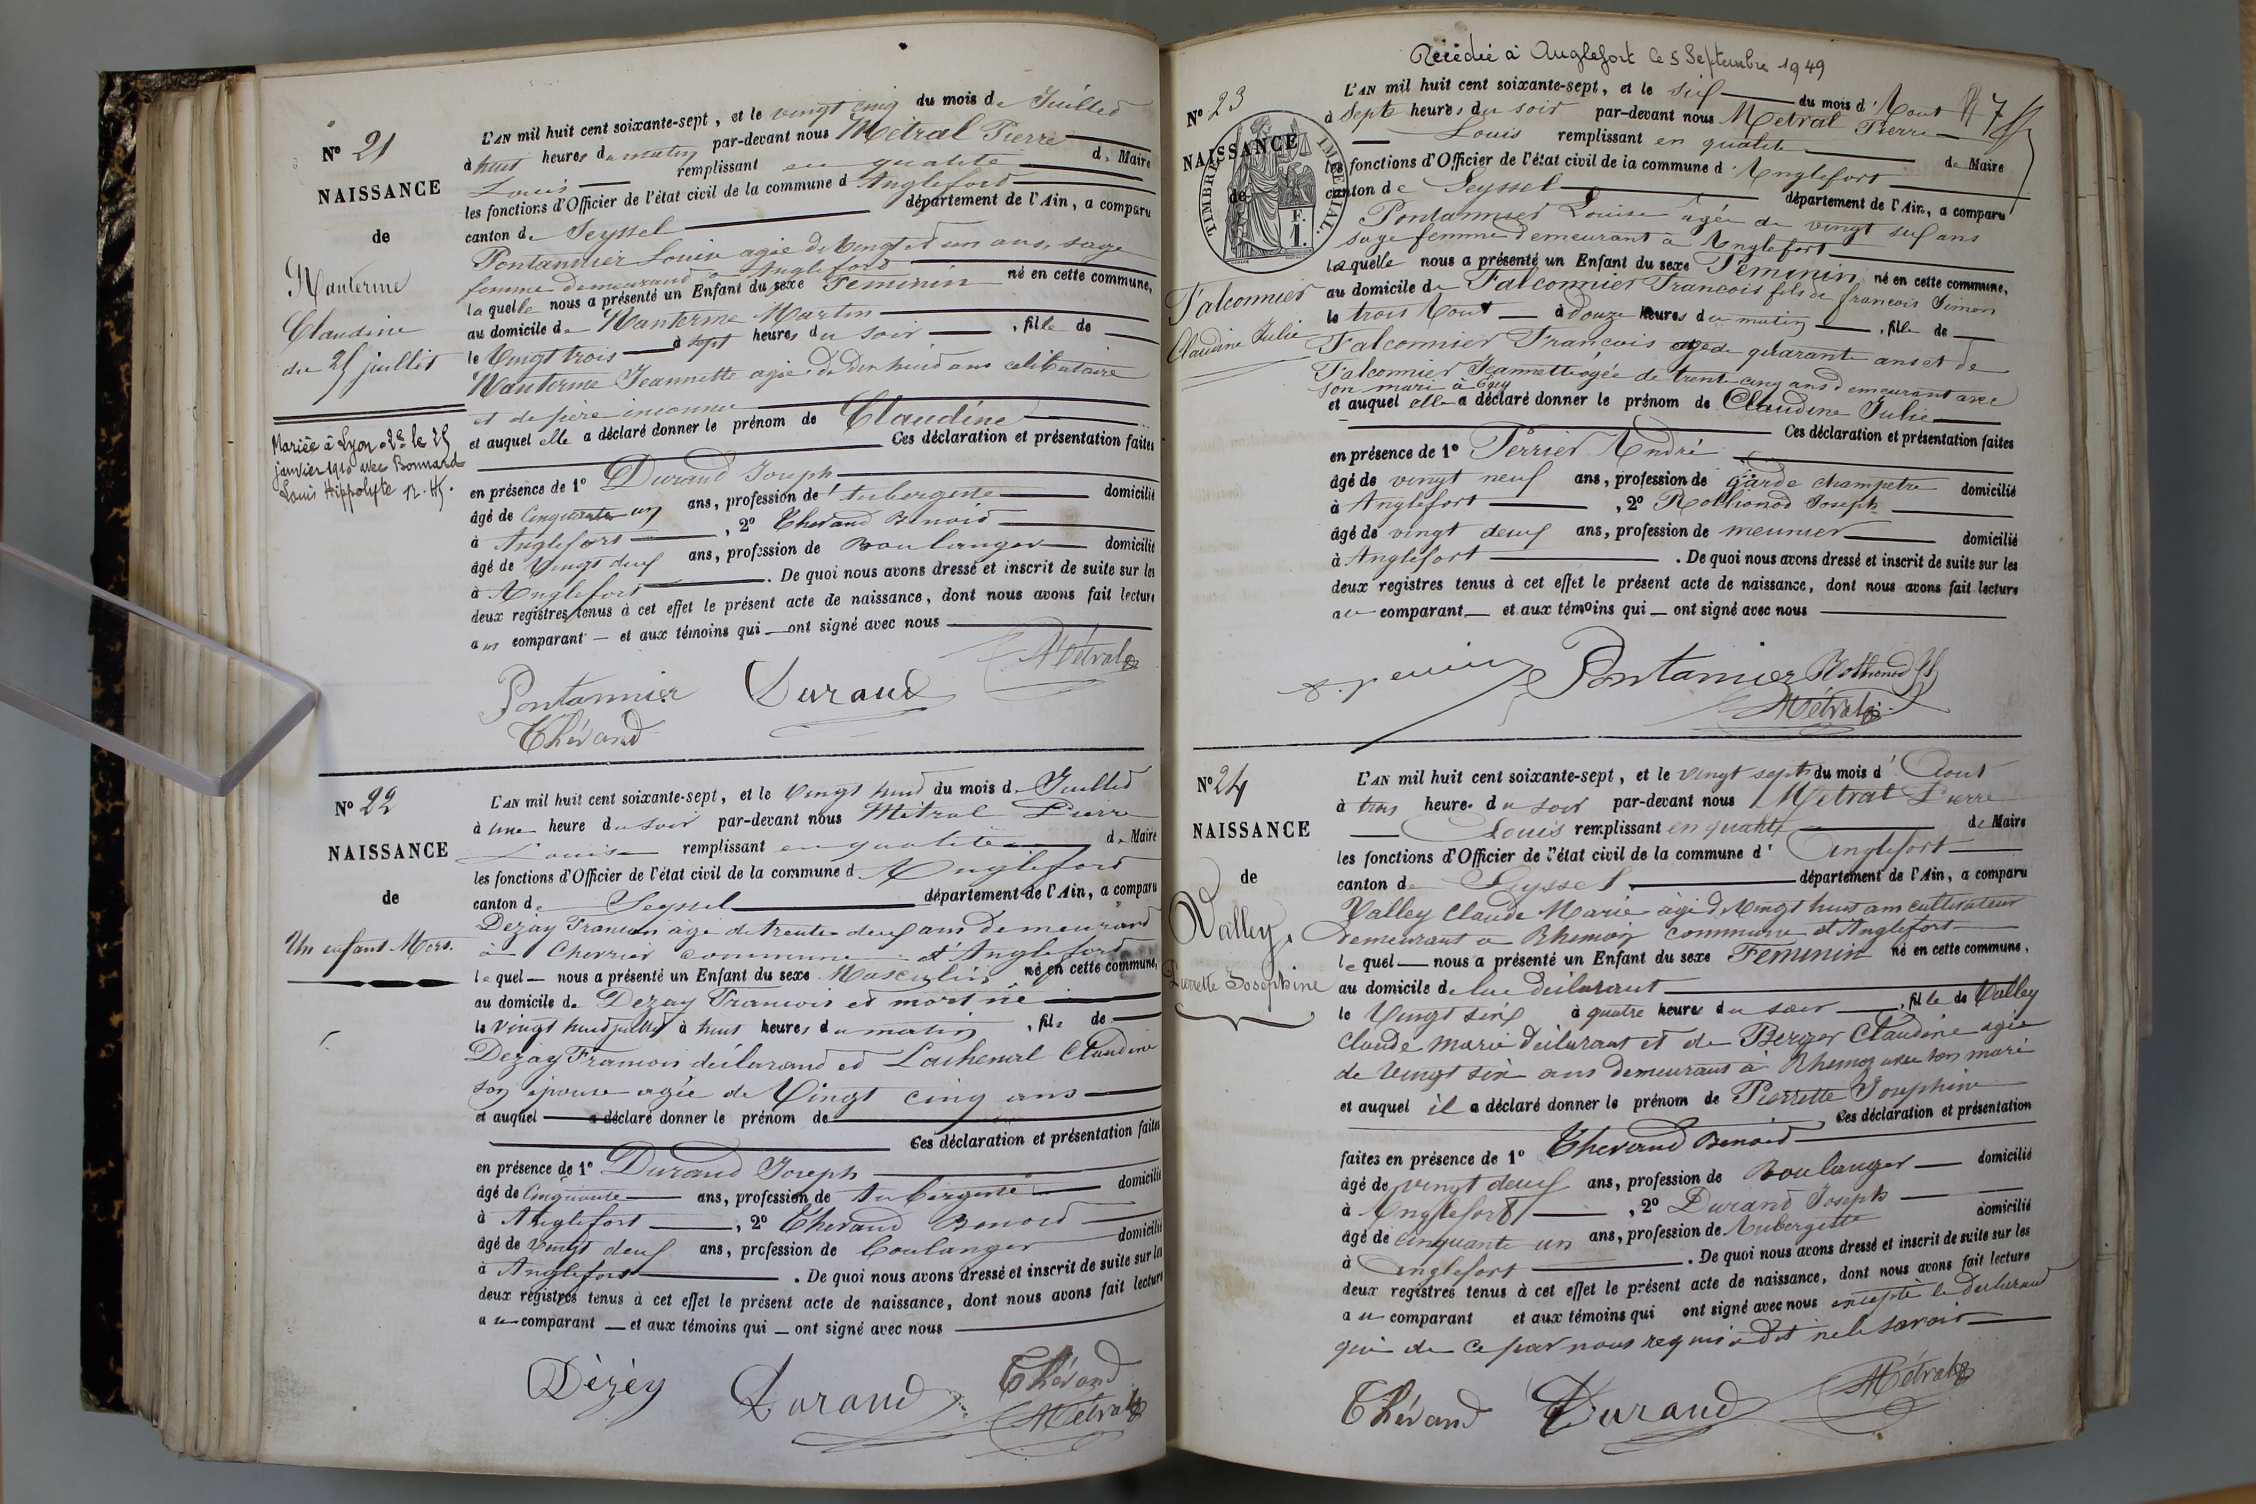 N° 21
NAISSANCE
de
Nanterme
Claudine
du 25 juillet
Mariée à Lyon 2e le 25
janvier 1910 avec Bonnard
Louis Hippolyte
L'AN mil huit cent soixante-sept, et le vingt cinq du mois de Juillet
à huit heures du matin par-devant nous Métral Pierre
Louis remplissant en qualité de Maire
les fonctions d'Officier de l'état civil de la commune d'Anglefort
canton de Seyssel département de l'Ain, a comparu
Pontannier Louise agée de vingt et un ans, sage
femme demeurant à Anglefort
laquelle nous a présenté un Enfant du sexe Féminin né en cette commune,
au domicile de Nanterme Martin
le Vingt trois à sept heures du soir, fille de
Nanterme Jeannette agée de dix huit ans celibataire
et de père inconnu
et auquel elle a déclaré donner le prénom de Claudine
Ces déclaration et présentation faites
en présence de 1° Durand Joseph
âgé de Cinquante un ans, profession de Aubergiste domicilié
à Anglefort, 2° Thevand Benoid
âgé de Vingt deux ans, profession de Boulanger domicilié
à Anglefort. De quoi nous avons dressé et inscrit de suite sur les
deux registres tenus à cet effet le présent acte de naissance, dont nous avons fait lecture
au comparant — et aux témoins qui — ont signé avec nous
Métral
Pontannier Durand
Thévand
N° 22
NAISSANCE
de
Un enfant Mort.
L'AN mil huit cent soixante-sept, et le Vingt huit du mois de Juillet
à une heure du soir par-devant nous Métral Pierre
Louis remplissant en qualité de Maire
les fonctions d'Officier de l'état civil de la commune d'Anglefort
canton de Seyssel département de l'Ain, a comparu
Dezay Francois agé de trente deux ans demeurant
à Chevrier commune d'Anglefort
lequel — nous a présenté un Enfant du sexe Masculin né en cette commune,
au domicile de Dezay Francois et mort né
le Vingt huit juillet à huit heures du matin, fils de
Dezay Francois déclarant et Lachenal Claudine
son épouse agée de Vingt cinq ans
et auquel — a déclaré donner le prénom de
Ces déclaration et présentation faites
en présence de 1° Durand Joseph
âgé de Cinquante ans, profession de Aubergiste domicilié
à Anglefort, 2° Thevand Benoid
âgé de Vingt deux ans, profession de Boulanger domicilié
à Anglefort. De quoi nous avons dressé et inscrit de suite sur les
deux registres tenus à cet effet le présent acte de naissance, dont nous avons fait lecture
au comparant — et aux témoins qui — ont signé avec nous
Dézéy Durand Thévand
Métral
Décédée à Anglefort le 5 Septembre 1949
N° 23
NAISSANCE
de
TIMBRE IMPERIAL.
1 F.
Falconnier
Claudine Julie
L'AN mil huit cent soixante-sept, et le six du mois d'Aout
à Sept heures du soir par-devant nous Metral Pierre
Louis remplissant en qualité de Maire
les fonctions d'Officier de l'état civil de la commune d'Anglefort
canton de Seyssel département de l'Ain, a comparu
Pontannier Louise agée de vingt six ans
sage femme demeurant à Anglefort
laquelle nous a présenté un Enfant du sexe Féminin né en cette commune,
au domicile de Falconnier Francois fils de francois Simon
le trois Aout à douze heures du matin, fille de
Falconnier François agé de quarante ans et de
Falconnier Jeannette agée de trente cinq ans demeurant avec
son mari à
et auquel elle a déclaré donner le prénom de Claudine Julie
Ces déclaration et présentation faites
en présence de 1° Perrier André
âgé de vingt neuf ans, profession de garde champetre domicilié
à Anglefort, 2° Rothonod Joseph
âgé de vingt deux ans, profession de meunier domicilié
à Anglefort. De quoi nous avons dressé et inscrit de suite sur les
deux registres tenus à cet effet le présent acte de naissance, dont nous avons fait lecture
au comparant — et aux témoins qui — ont signé avec nous
Pontannier Rothonod
Métral
N° 24
NAISSANCE
de
Valley
Pierrette Josephine
L'AN mil huit cent soixante-sept, et le vingt sept du mois d'Aout
à trois heures du soir par-devant nous Métral Pierre
Louis remplissant en qualité de Maire
les fonctions d'Officier de l'état civil de la commune d'Anglefort
canton de Seyssel département de l'Ain, a comparu
Valley Claude Marie agé de Vingt huit ans cultivateur
demeurant a Rhemoz commune d'Anglefort
lequel — nous a présenté un Enfant du sexe Féminin né en cette commune,
au domicile de lui déclarant
le Vingt six à quatre heures du soir, fille de Valley
Claude Marie déclarant et de Berger Claudine agée
de Vingt six ans demeurant à Rhemoz avec son mari
et auquel il a déclaré donner le prénom de Pierrette Josephine
Ces déclaration et présentation
faites en présence de 1° Thevand Benoid
âgé de vingt deux ans, profession de Boulanger domicilié
à Anglefort, 2° Durand Joseph
âgé de cinquante un ans, profession de Aubergiste domicilié
à Anglefort. De quoi nous avons dressé et inscrit de suite sur les
deux registres tenus à cet effet le présent acte de naissance, dont nous avons fait lecture
au comparant et aux témoins qui ont signé avec nous excepté le declarant
qui de ce par nous requis a dit ne le savoir
Thévand Durand Métral